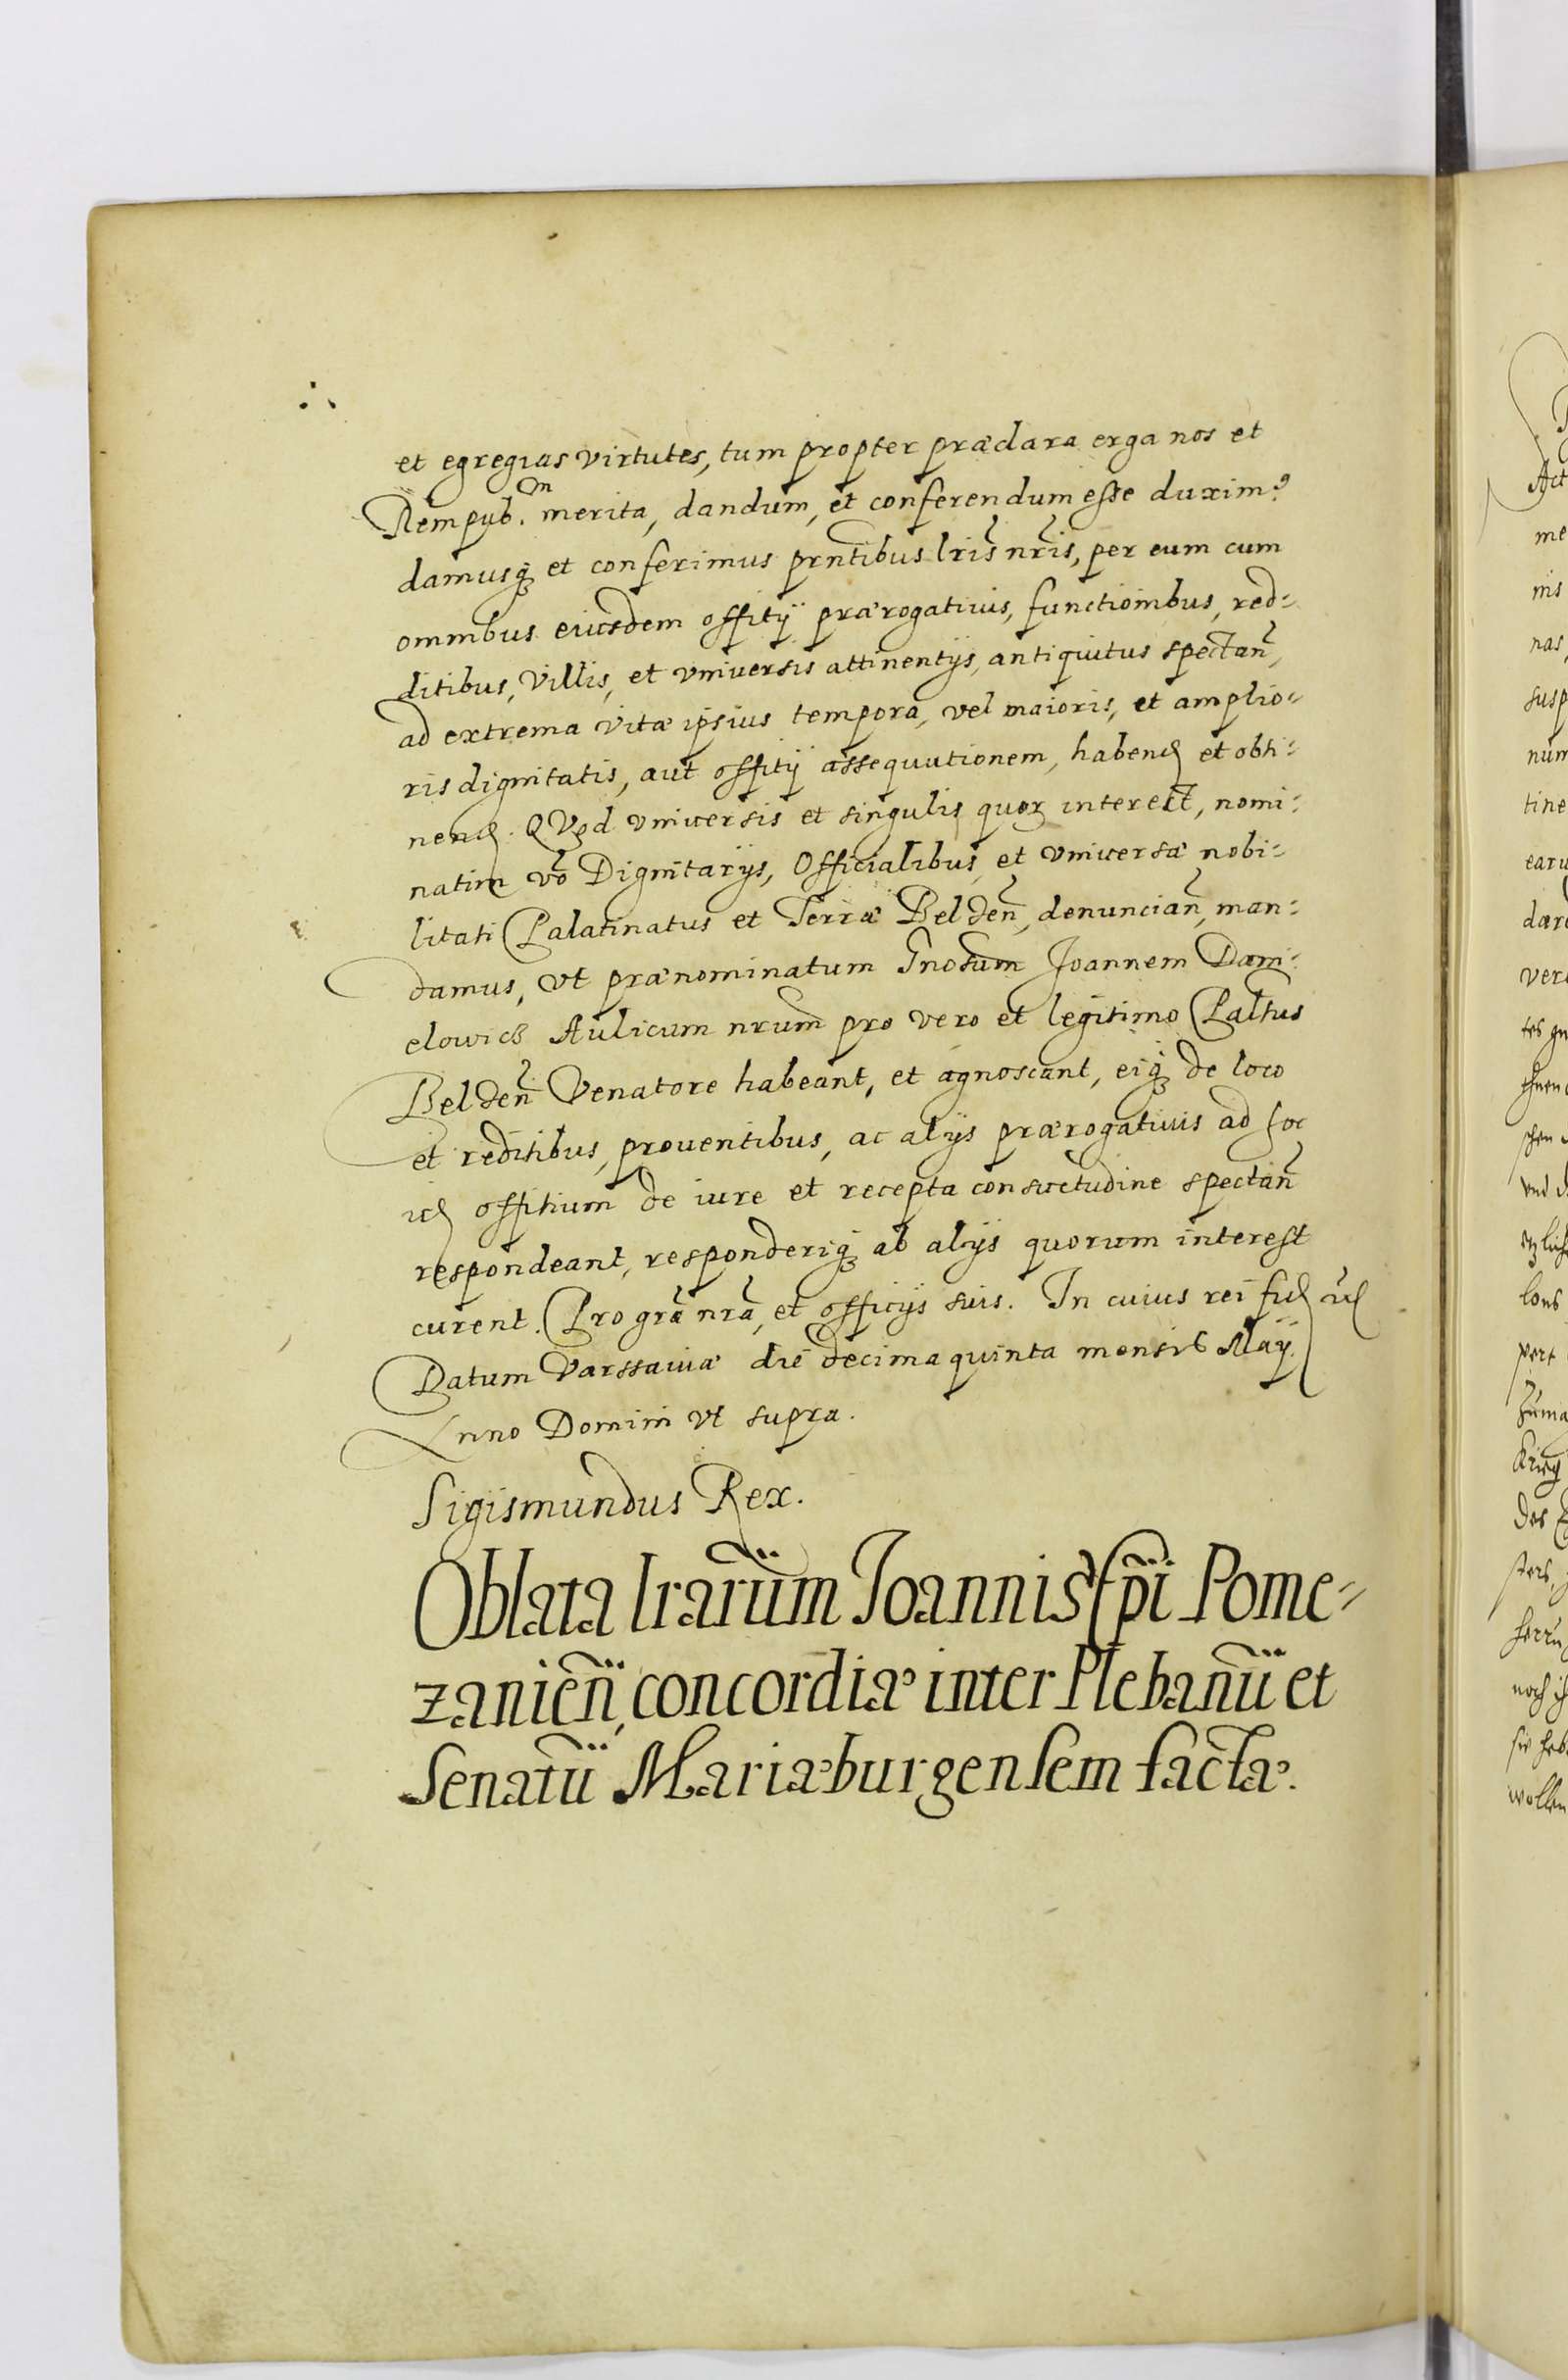 et egregias virtutes, tum propter præclara erga nos et
Rempub.m merita, dandum, et conferendum esse duxim9
damusq et conferimus prntibus lris nris, per eum cum
omnibus eiusdem offitij prærogativis, functionibus, red-
ditibus, villis, et vniversis attinentijs, antiquitus spectan,
ad extrema vitæ ipsius tempora, vel maioris, et amplio-
ris dignitatis, aut offitij assequutionem, habend et obti-
nend. Quod vniversis et singulis quor interest, nomi-
natim vo Dignitarijs, Officialibus, et vniversæ nobi-
litati Palatinatus et Terræ Belden, denuncian, man-
damus, vt prænominatum Gnosum Joannem Dani-
elowicz Aulicum nrum pro vero et legitimo Paltus
Belden Venatore habeant, et agnoscant, eiq de loco
et reditibus, proventibus, ac alijs prærogativis ad hoc
id offitium de iure et recepta consuetudine spectan
respondeant, responderiq ab alijs quorum interest
curent. Pro gra nra, et officijs suis. In cuius rei fid
Datum Varssaviæ die decima quinta mensis Maij.
Anno Domini vt supra.
Sigismundus Rex.
Oblata lrarum Joannis Epi Pome-
zanien, concordiæ inter Plebanu et
Senatu Mariæburgensem factæ.